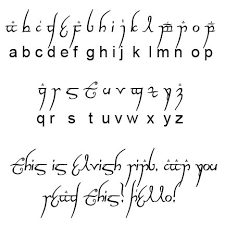 a b c d e f g h i j k l m n o p
a b c d e f g h i j k l m n o p
q r s t u v w x y z
q r s t u v w x y z
This is Elvish can you
read this! Hello!